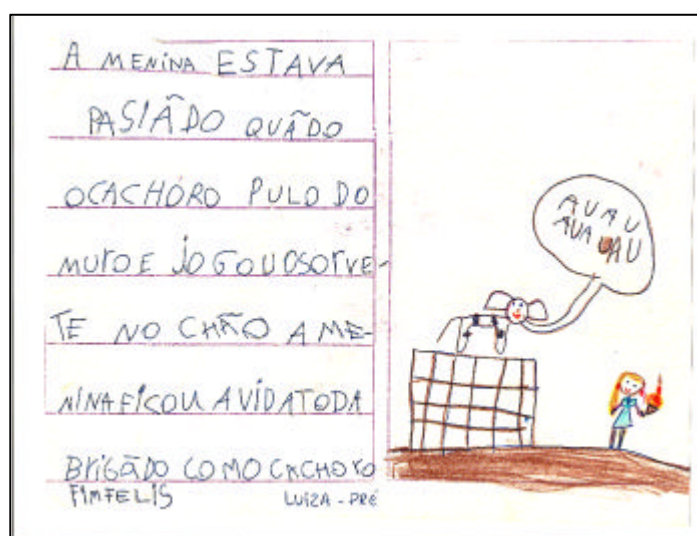 A MENINA ESTAVA
PASIÃDO QUÃDO
OCACHORO PULO DO
MURO E JOGOU OSORVE-
TE NO CHÃO A ME-
NINA FICOU A VIDA TODA
BRIGÃDO COMO CACHORO
FIMFELIS
LUIZA - PRÉ
AUAU
AUAUAU